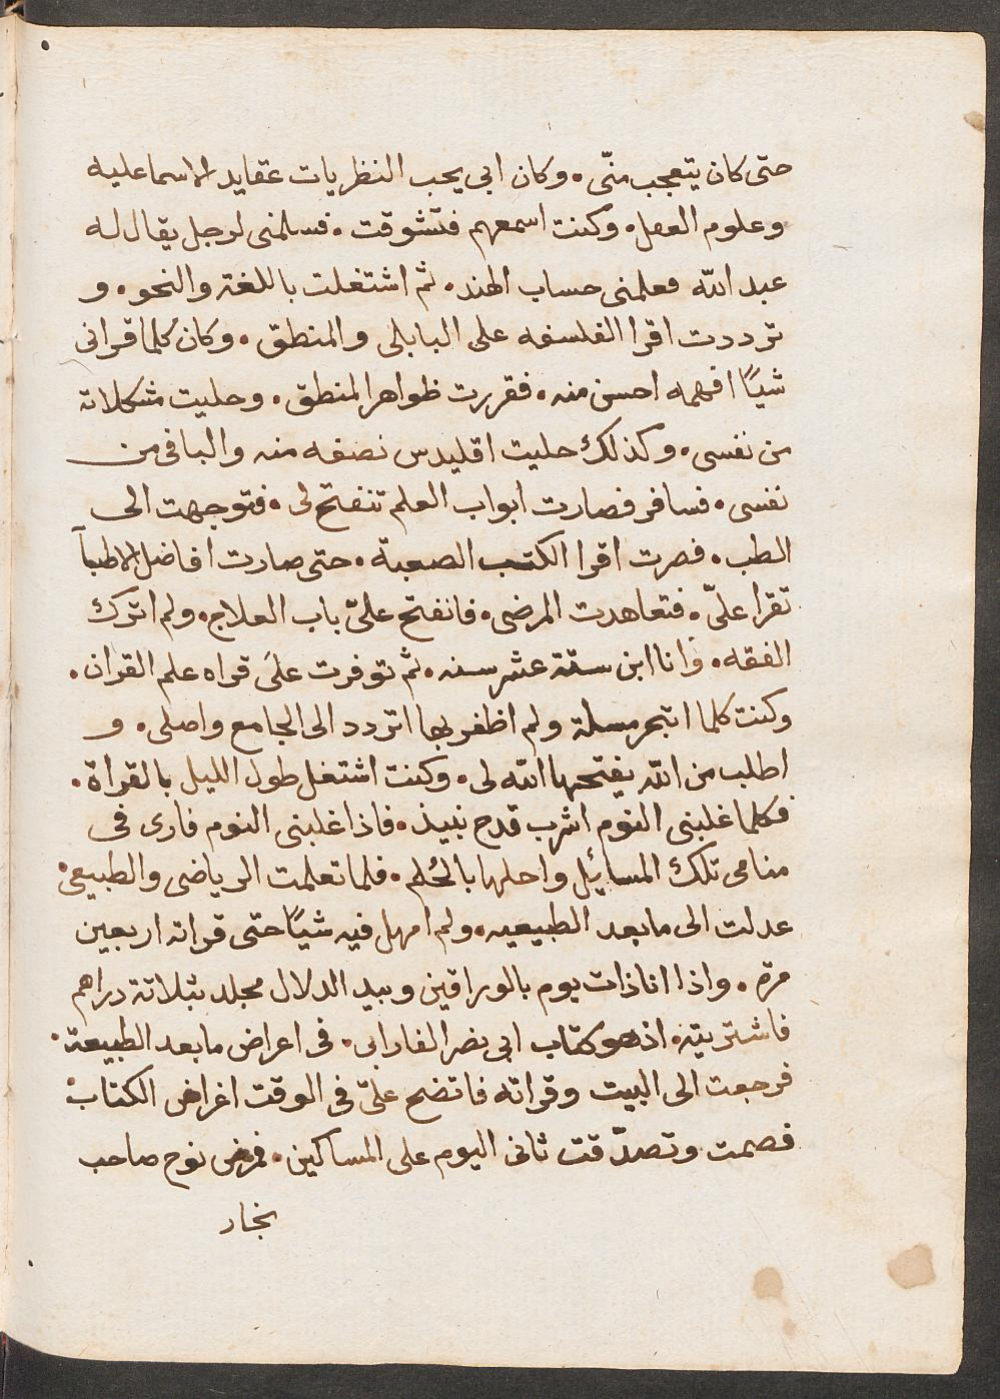 حتى كان يتعجب منّى . وكان ابى يحب النظريات عقايد الاسماعليه
وعلوم العقل . وكنت اسمعهم فتشوقت . فسلمنى لرجل يقال له
عبد الله فعلمنى حساب الهند . ثم اشتغلت باللغة والنحو . و
ترددت اقرا الفلسفه على البابلى والمنطق . وكان كلما قرانى
شيًا افهمه احسن منه . فقررت ظواهر المنطق . وحليت مشكلاته
من نفسى . وكذلك حليت اقليدس نصفه منه والباقى من
نفسى . فسافر فصارت ابواب العلم تنفتح لى . فتوجهت الى
الطب . فصرت اقرا الكتب الصعبة . حتى صارت افاضل الاطبآ
تقرا علىّ . فتعاهدت المرضى . فانفتح علىّ باب العلاج . ولم اترك
الفقه . وانا ابن ستة عشر سنه . ثم توفرت على قراه علم القران .
وكنت كلما اتبحر مسلة ولم اظفر بها اتردد الى الجامع واصلى . و
اطلب من الله يفتحها الله لى . وكنت اشتغل طول الليل بالقراة .
فكلما غلبنى النوم اشرب قدح نبيذ . فاذا غلبنى النوم فارى فى
منامى تلك المسائل واحلها بالحُلم . فلما تعلمت الرياضى والطبيعى .
عدلت الى مابعد الطبيعيه . ولم امهل فيه شيًا حتى قراته اربعين
مرة . واذا انا ذات يوم بالوراقين وبيد الدلال مجلد بثلاثة دراهم
فاشتريته . اذ هو كتاب ابى نصر الفارابى . فى اعراض مابعد الطبيعة .
فرجعت الى البيت وقراته فاتضح علىّ فى الوقت اغراض الكتاب .
فصمت وتصدّقت ثانى اليوم على المساكين . فمرض نوح صاحب
بخار